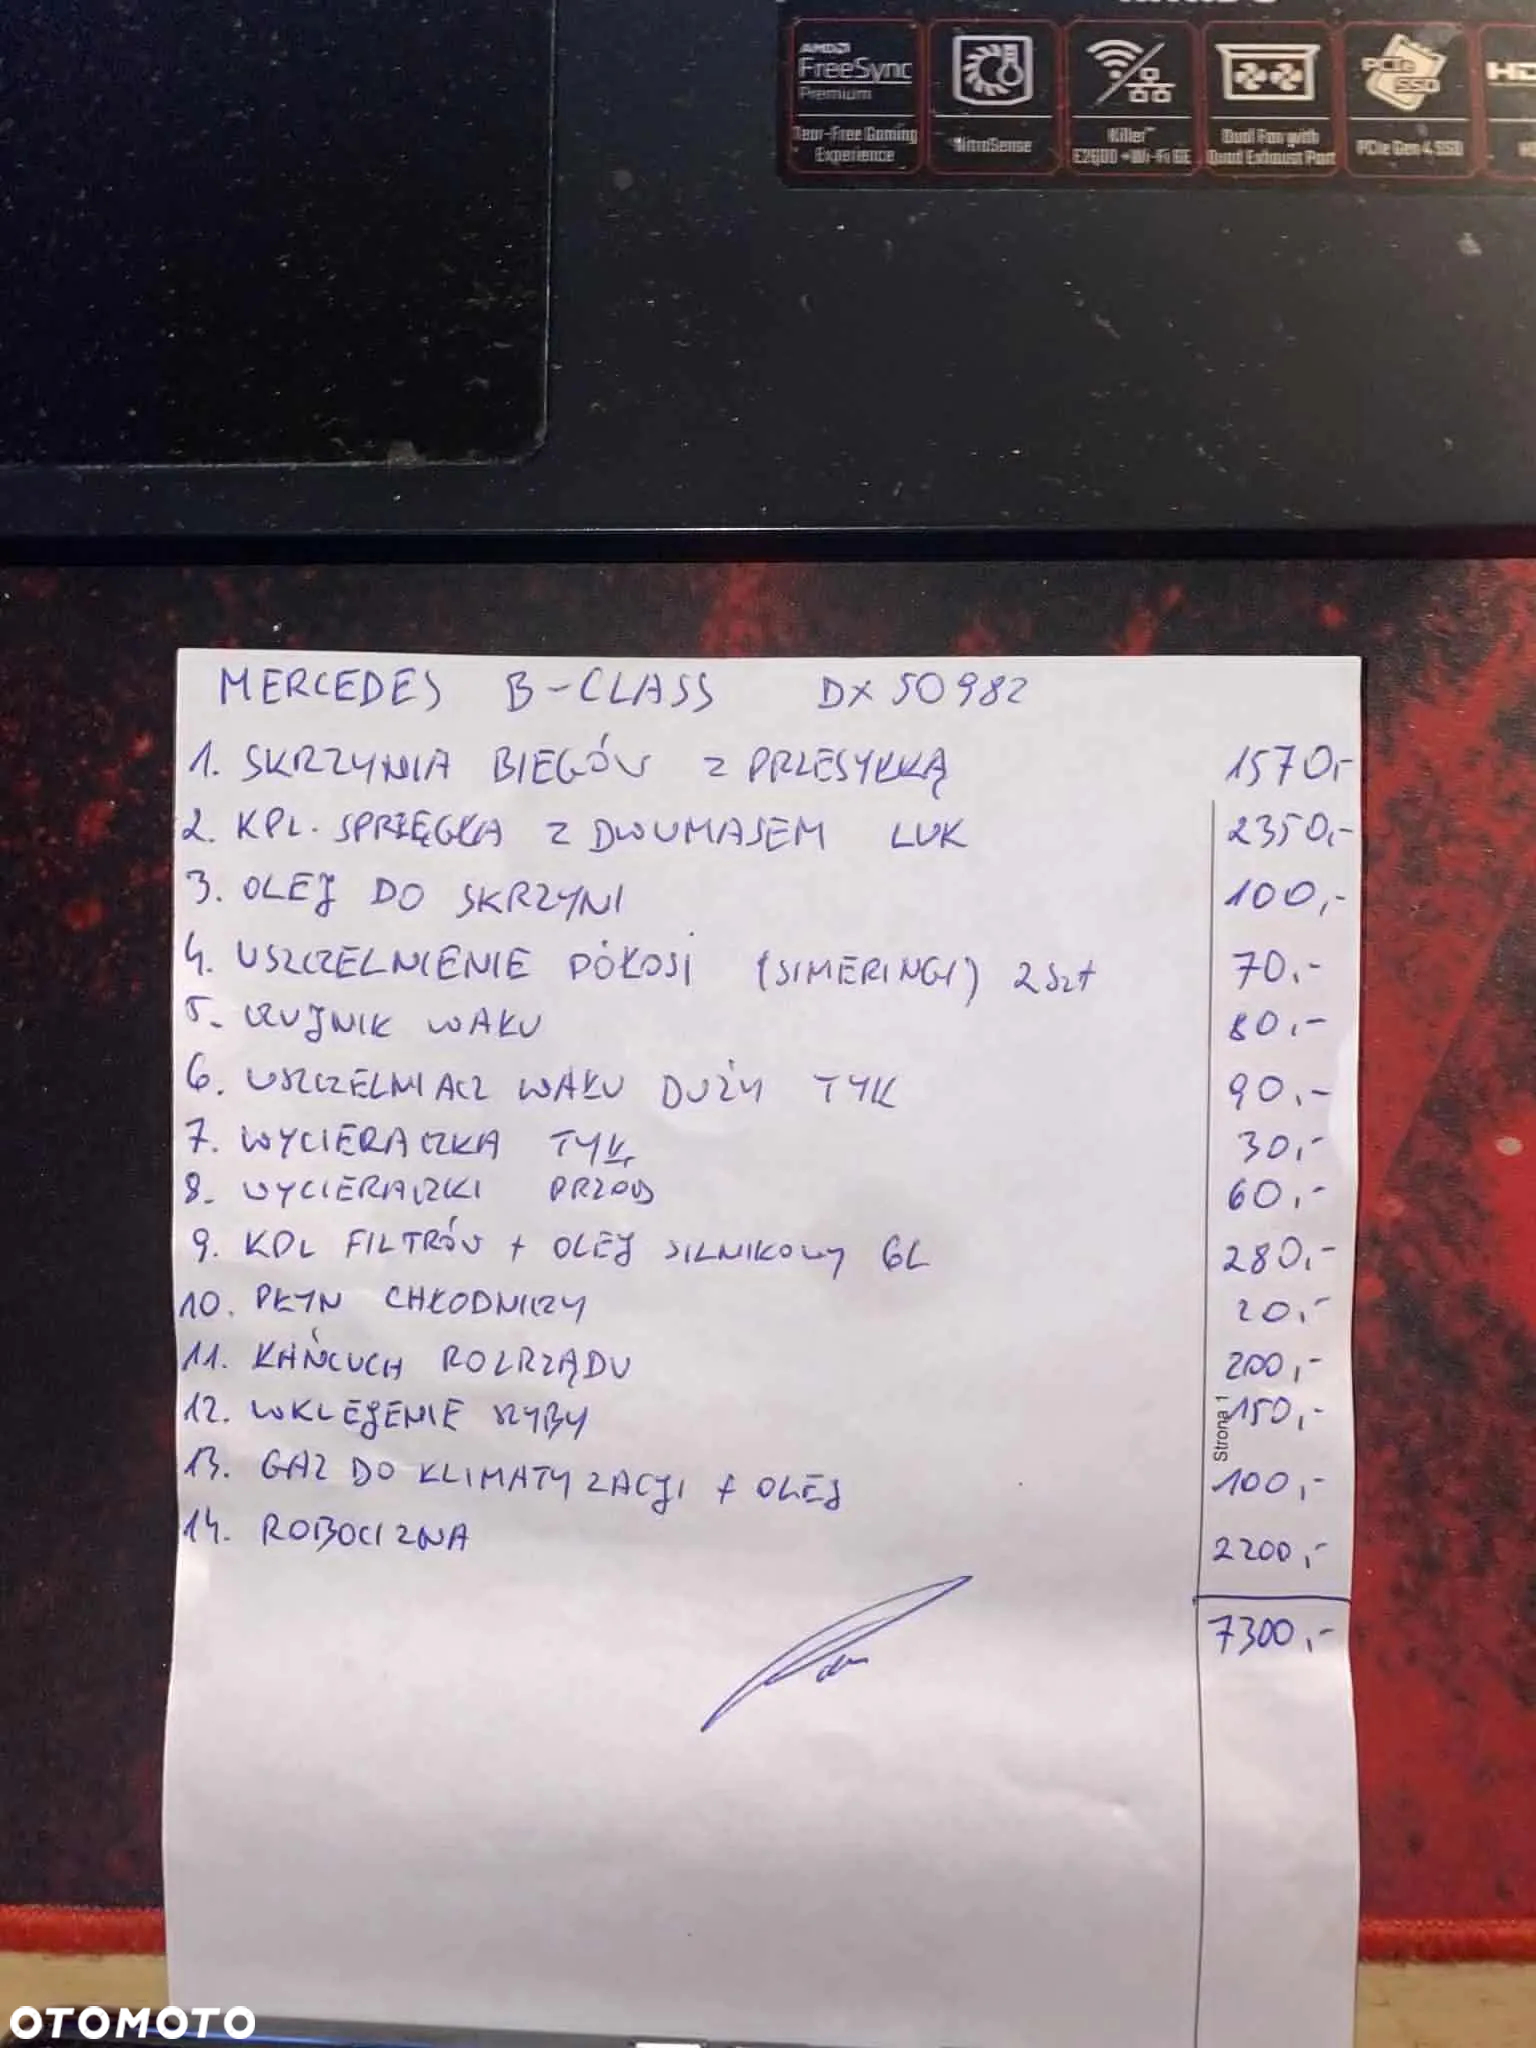 AMD FreeSync Premium
Tear-Free Gaming Experience
NitroSense
Killer™ E2600 +Wi-Fi 6E
Dual Fan with Quad Exhaust Port
PCIe SSD
PCIe Gen 4 SSD
MERCEDES B-CLASS DX 50982
1. SKRZYNIA BIEGÓW Z PRZESYŁKĄ 1570,-
2. KPL. SPRZĘGŁA Z DWUMASEM LUK 2350,-
3. OLEJ DO SKRZYNI 100,-
4. USZCZELNIENIE PÓŁOSI (SIMERINGI) 2 szt 70,-
5. CZUJNIK WAŁU 80,-
6. USZCZELNIACZ WAŁU DUŻY TYŁ 90,-
7. WYCIERACZKA TYŁ 30,-
8. WYCIERACZKI PRZÓD 60,-
9. KPL FILTRÓW + OLEJ SILNIKOWY 6L 280,-
10. PŁYN CHŁODNICZY 20,-
11. ŁAŃCUCH ROZRZĄDU 200,-
12. WKLEJENIE SZYBY 150,-
13. GAZ DO KLIMATYZACJI + OLEJ 100,-
14. ROBOCIZNA 2200,-
7300,-
Strona 1
OTOMOTO